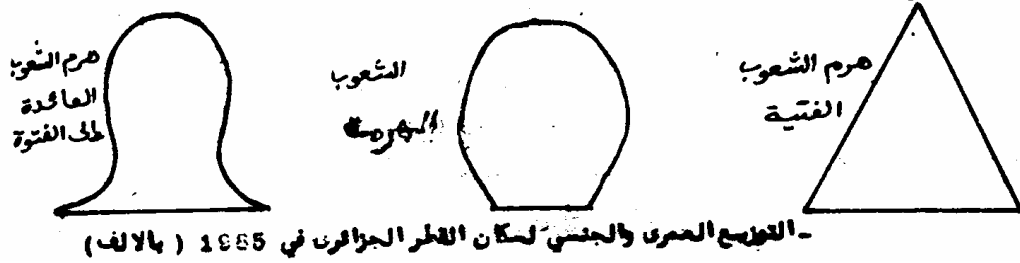 هرم الشعوب
الفتية
الشعوب
الهرمة
هرم الشعوب
العائدة
الى الفتوة
-التوزيع العمرى والجنسي لسكان القطر الجزائرى في 1985 ( بالالف)